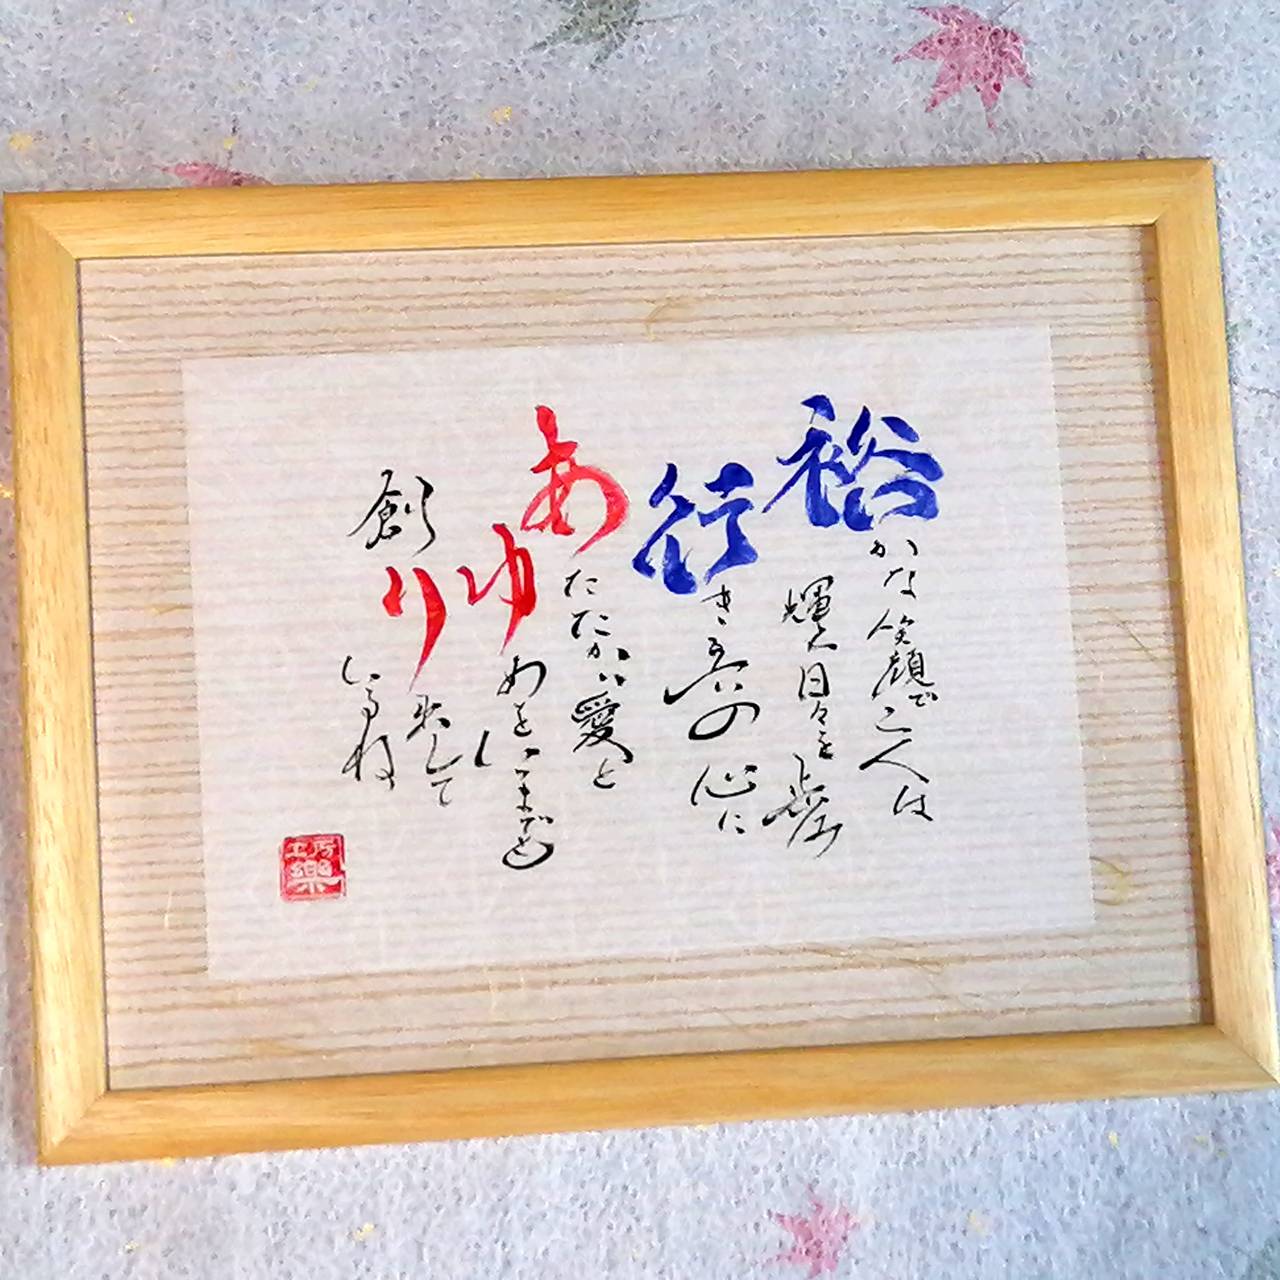 裕かな笑顔で二人は
輝く日々を歩み
行き互いの心に
あたたかい愛と
ゆめをいつまでも
創り出して
いるね
工房
樂